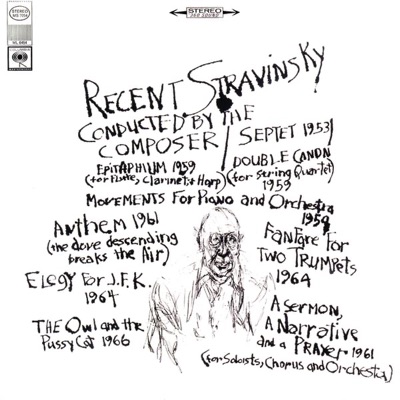 STEREO
360 SOUND
STEREO
MS 7054
COLUMBIA
RECENT STRAVINSKY
CONDUCTED BY THE
COMPOSER / SEPTET 1953/
EPITAPHIUM 1959
(for Flute, Clarinet & Harp)
DOUBLE CANON
(for String Quartet)
1959
MOVEMENTS For Piano and Orchestra
1959
Anthem 1961
(the dove descending
breaks the Air)
FanFare For
Two Trumpets
1964
Elegy For J.F.K.
1964
THE Owl and the
PussyCat 1966
A Sermon,
A Narrative
and a Prayer 1961
(for Soloists, Chorus and Orchestra)